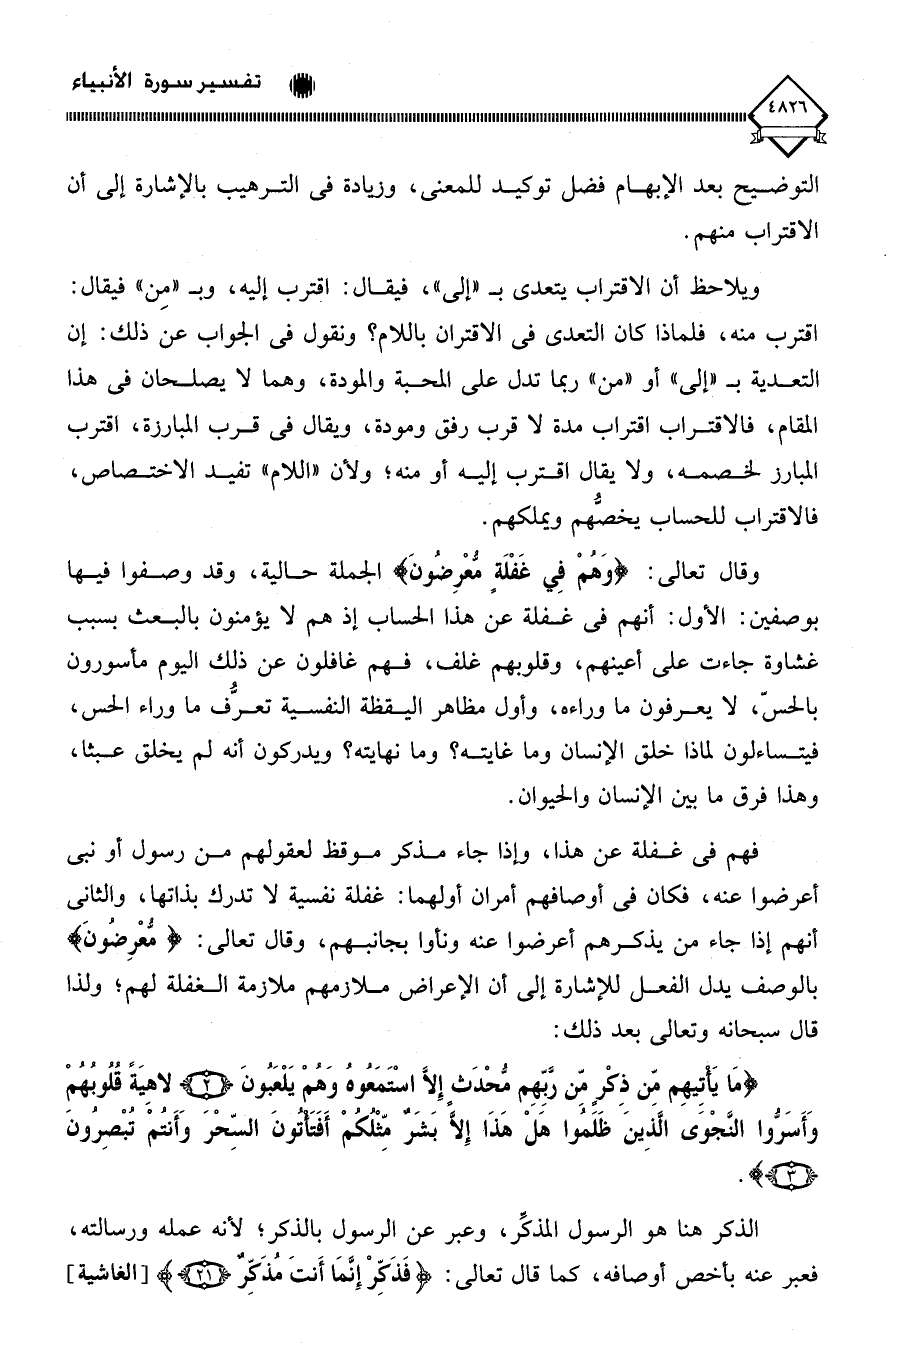 تفسير سورة الأنبياء
٤٨٢٦
التوضيح بعد الإبهام فضل توكيد للمعنى، وزيادة فى الترهيب بالإشارة إلى أن
الاقتراب منهم.
ويلاحظ أن الاقتراب يتعدى بـ «إلى»، فيقال: اقترب إليه، وبـ «مِن» فيقال:
اقترب منه، فلماذا كان التعدى فى الاقتران باللام؟ ونقول فى الجواب عن ذلك: إن
التعدية بـ «إلى» أو «من» ربما تدل على المحبة والمودة، وهما لا يصلحان فى هذا
المقام، فالاقتراب اقتراب مدة لا قرب رفق ومودة، ويقال فى قرب المبارزة، اقترب
المبارز لخصمه، ولا يقال اقترب إليه أو منه؛ ولأن «اللام» تفيد الاختصاص،
فالاقتراب للحساب يخصُّهم ويملكهم.
وقال تعالى: ﴿وَهُمْ فِي غَفْلَةٍ مُّعْرِضُونَ﴾ الجملة حالية، وقد وصفوا فيها
بوصفين: الأول: أنهم فى غفلة عن هذا الحساب إذ هم لا يؤمنون بالبعث بسبب
غشاوة جاءت على أعينهم، وقلوبهم غلف، فهم غافلون عن ذلك اليوم مأسورون
بالحسّ، لا يعرفون ما وراءه، وأول مظاهر اليقظة النفسية تعرُّف ما وراء الحس،
فيتساءلون لماذا خلق الإنسان وما غايته؟ وما نهايته؟ ويدركون أنه لم يخلق عبثا،
وهذا فرق ما بين الإنسان والحيوان.
فهم فى غفلة عن هذا، وإذا جاء مذكر موقظ لعقولهم من رسول أو نبى
أعرضوا عنه، فكان فى أوصافهم أمران أولهما: غفلة نفسية لا تدرك بذاتها، والثانى
أنهم إذا جاء من يذكرهم أعرضوا عنه ونأوا بجانبهم، وقال تعالى: ﴿ مُّعْرِضُونَ﴾
بالوصف يدل الفعل للإشارة إلى أن الإعراض ملازمهم ملازمة الغفلة لهم؛ ولذا
قال سبحانه وتعالى بعد ذلك:
﴿مَا يَأْتِيهِم مِّن ذِكْرٍ مِّن رَّبِّهِم مُّحْدَثٍ إِلاَّ اسْتَمَعُوهُ وَهُمْ يَلْعَبُونَ ﴿٢﴾ لاهِيَةً قُلُوبُهُمْ
وَأَسَرُّوا النَّجْوَى الَّذِينَ ظَلَمُوا هَلْ هَذَا إِلاَّ بَشَرٌ مِّثْلُكُمْ أَفَتَأْتُونَ السِّحْرَ وَأَنتُمْ تُبْصِرُونَ
﴿٣﴾﴾.
الذكر هنا هو الرسول المذكِّر، وعبر عن الرسول بالذكر؛ لأنه عمله ورسالته،
فعبر عنه بأخص أوصافه، كما قال تعالى: ﴿ فَذَكِّرْ إِنَّمَا أَنتَ مُذَكِّرٌ ﴿٢١﴾﴾ [الغاشية]